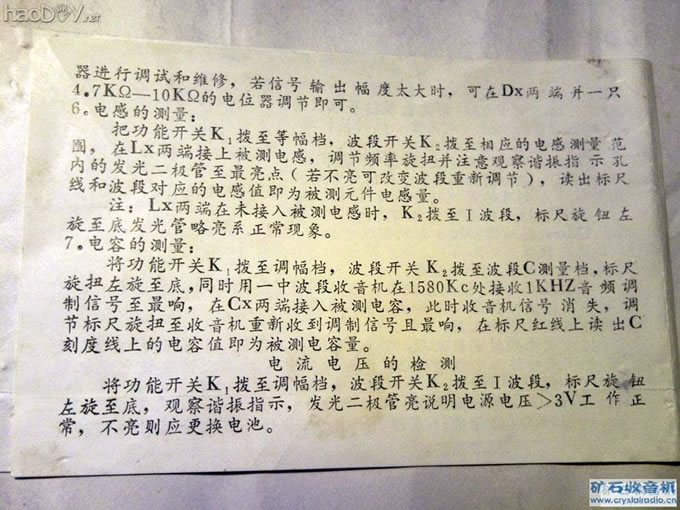 haoDIY.net
器进行调试和维修，若信号输出幅度太大时，可在Dx两端并一只
4.7KΩ—10KΩ的电位器调节即可。
6.电感的测量：
把功能开关K₁拨至等幅档，波段开关K₂拨至相应的电感测量范
围，在Lx两端接上被测电感，调节频率旋扭并注意观察谐振指示孔
内的发光二极管至最亮点（若不亮可改变波段重新调节），读出标尺
线和波段对应的电感值即为被测元件电感量。
注：Lx两端在未接入被测电感时，K₂拨至I波段，标尺旋钮左
旋至底发光管略亮系正常现象。
7.电容的测量：
将功能开关K₁拨至调幅档，波段开关K₂拨至波段C测量档，标尺
旋扭左旋至底，同时用一中波段收音机在1580Kc处接收1KHZ音频调
制信号至最响，在Cx两端接入被测电容，此时收音机信号消失，调
节标尺旋扭至收音机重新收到调制信号且最响，在标尺红线上读出C
刻度线上的电容值即为被测电容量。
电流电压的检测
将功能开关K₁拨至调幅档，波段开关K₂拨至I波段，标尺旋钮
左旋至底，观察谐振指示，发光二极管亮说明电源电压>3V工作正
常，不亮则应更换电池。
矿石收音机
www.crystalradio.cn